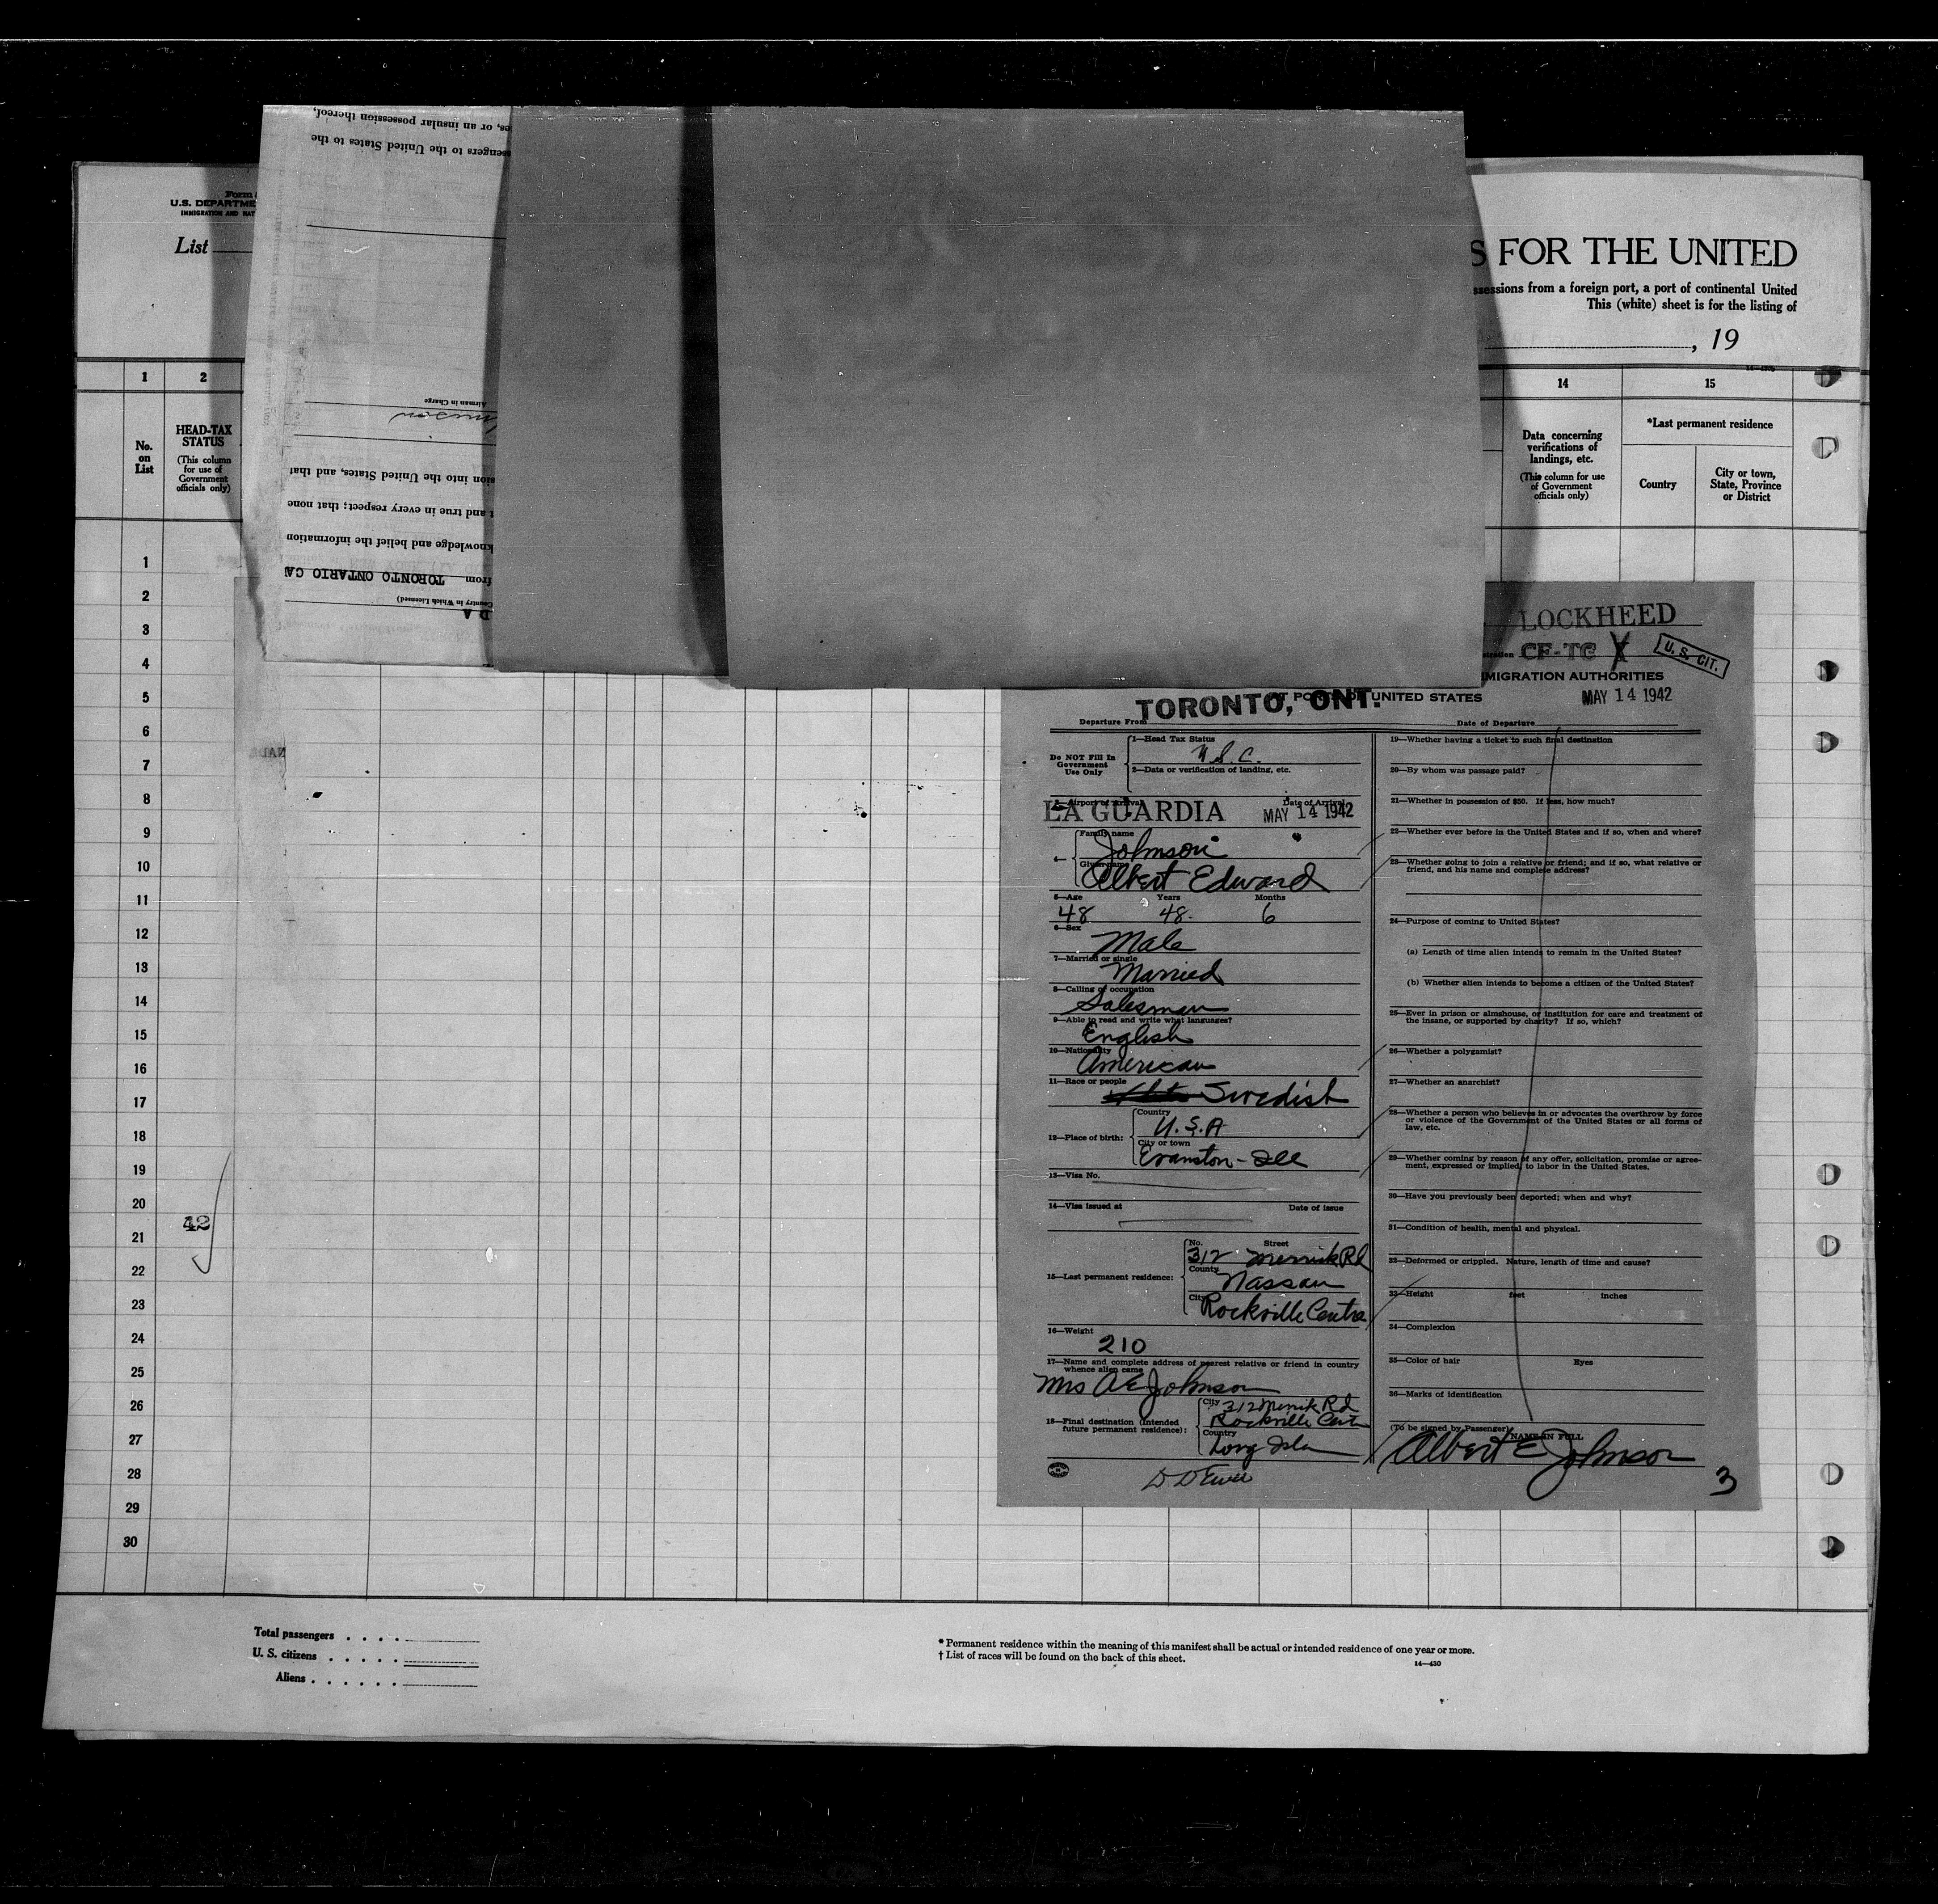 Form
U.S. DEPARTME
IMMIGRATION AND NAT
List
es, or an insular possession thereof,
ssengers to the United States to the
Airman in Charge
sion into the United States, and that
t and true in every respect; that none
knowledge and belief the information
from TORONTO ONTARIO CA
Country in Which Licensed)
S FOR THE UNITED
ssessions from a foreign port, a port of continental United
This (white) sheet is for the listing of
, 19
1
2
14
15
No.
on
List
HEAD-TAX
STATUS
(This column
for use of
Government
officials only)
Data concerning
verifications of
landings, etc.
(This column for use
of Government
officials only)
*Last permanent residence
Country
City or town,
State, Province
or District
1
2
3
4
5
6
7
8
9
10
11
12
13
14
15
16
17
18
19
20
42
21
22
23
24
25
26
27
28
29
30
LOCKHEED
CF-TC Y
U. S. CIT.
MIGRATION AUTHORITIES
UNITED STATES
MAY 14 1942
TORONTO, ONT.
Departure From
Date of Departure
Do NOT Fill In
Government
Use Only
1—Head Tax Status
U.S.C.
2—Data or verification of landing, etc.
3—Airport of Arrival
Date of Arrival
LA GUARDIA MAY 14 1942
4—
Family name
Johnson
Given name
Albert Edward
5—Age Years Months
48 48. 6
6—Sex
Male
7—Married or single
Married
8—Calling or occupation
Salesman
9—Able to read and write what languages?
English
10—Nationality
American
11—Race or people
Swedish
12—Place of birth:
Country
U.S.A
City or town
Evanston - Ill
13—Visa No.
14—Visa issued at Date of issue
15—Last permanent residence:
No. Street
312 Merrick Rd
County
Nassau
City
Rockville Centre
16—Weight
210
17—Name and complete address of nearest relative or friend in country
whence alien came
Mrs A E Johnson
18—Final destination (Intended
future permanent residence):
City 312 Merrick Rd
Rockville Cent
Country
Long Isla
19—Whether having a ticket to such final destination
20—By whom was passage paid?
21—Whether in possession of $50. If less, how much?
22—Whether ever before in the United States and if so, when and where?
23—Whether going to join a relative or friend; and if so, what relative or
friend, and his name and complete address?
24—Purpose of coming to United States?
(a) Length of time alien intends to remain in the United States?
(b) Whether alien intends to become a citizen of the United States?
25—Ever in prison or almshouse, or institution for care and treatment of
the insane, or supported by charity? If so, which?
26—Whether a polygamist?
27—Whether an anarchist?
28—Whether a person who believes in or advocates the overthrow by force
or violence of the Government of the United States or all forms of
law, etc.
29—Whether coming by reason of any offer, solicitation, promise or agree-
ment, expressed or implied, to labor in the United States.
30—Have you previously been deported; when and why?
31—Condition of health, mental and physical.
32—Deformed or crippled. Nature, length of time and cause?
33—Height feet inches
34—Complexion
35—Color of hair Eyes
36—Marks of identification
(To be signed by Passenger)
NAME IN FULL
Albert E Johnson
3
Total passengers . . . .
U. S. citizens . . . . .
Aliens . . . . . .
* Permanent residence within the meaning of this manifest shall be actual or intended residence of one year or more.
† List of races will be found on the back of this sheet.
14—430